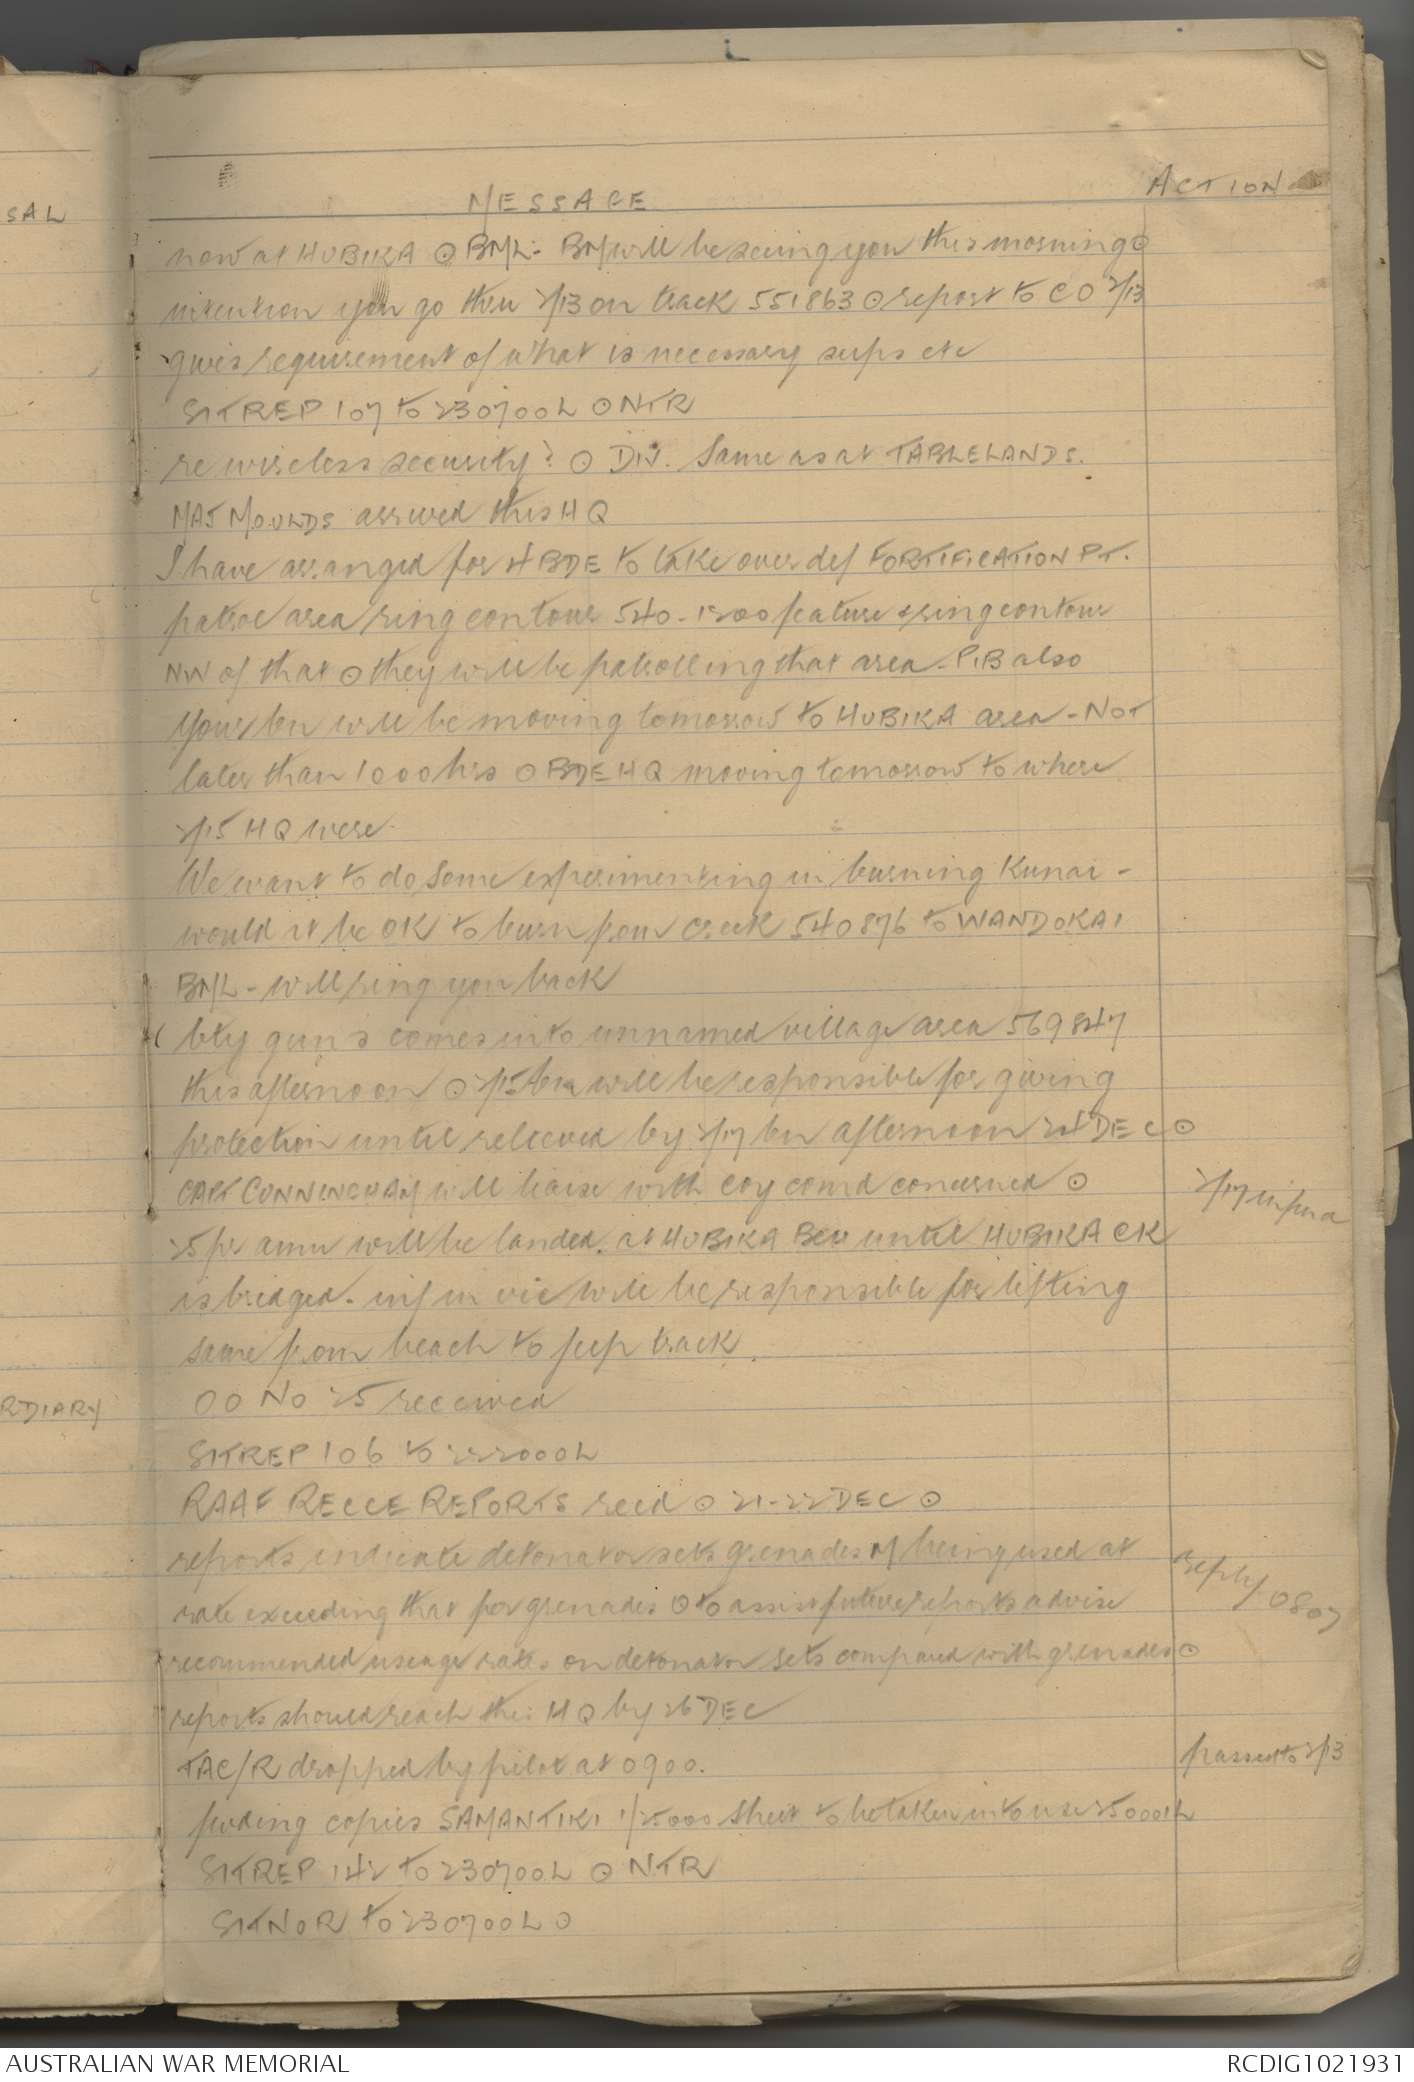 SAL
MESSAGE
ACTION
now at HUBIKA ⊙ BM/L - BM will be seeing you this morning ⊙
intention you go thru 2/13 on track 551863 ⊙ report to CO 2/13
gives requirement of what is necessary sups etc
SITREP 107 to 230700L ⊙ NTR
re wireless security? ⊙ DIV. Same as at TABLELANDS.
MAJ MOULDS arrived this HQ
I have arranged for 4 BDE to take over def FORTIFICATION PT.
patrol area ring contour 540 - 1200 feature & ring contour
NW of that ⊙ they will be patrolling that area - PIB also
Your bn will be moving tomorrow to HUBIKA area - NOT
later than 1000 hrs ⊙ BDE HQ moving tomorrow to where
2/15 HQ were
We want to do some experimenting in burning Kunai -
would it be OK to burn from creek 540876 to WANDOKAI
BM/L - will ring you back
bty guns comes into unnamed village area 569847
this afternoon ⊙ 2/15 bn will be responsible for giving
protection until relieved by 2/17 bn afternoon 24 DEC ⊙
CAPT CUNNINGHAM will liaise with coy comd concerned ⊙
2/17 informed
25 pr amn will be landed at HUBIKA Bch until HUBIKA CK
is bridged - inf in vic will be responsible for lifting
same from beach to jeep track
OO No 25 received
R DIARY
SITREP 106 to 222000L
RAAF RECCE REPORTS recd ⊙ 21-22 DEC ⊙
reports indicate detonator sets grenades M being used at
rate exceeding that for grenades ⊙ to assist future reports advise
reply 0807
recommended useage rates on detonator sets compared with grenades ⊙
reports should reach this HQ by 26 DEC
TAC/R dropped by pilot at 0900.
passed to 2/13
copies SAMANTIKI 1/25000 sheet to be taken into use 250001L
SITREP 142 to 230700L ⊙ NTR
SITNOR to 230700L ⊙
AUSTRALIAN WAR MEMORIAL
RCDIG1021931